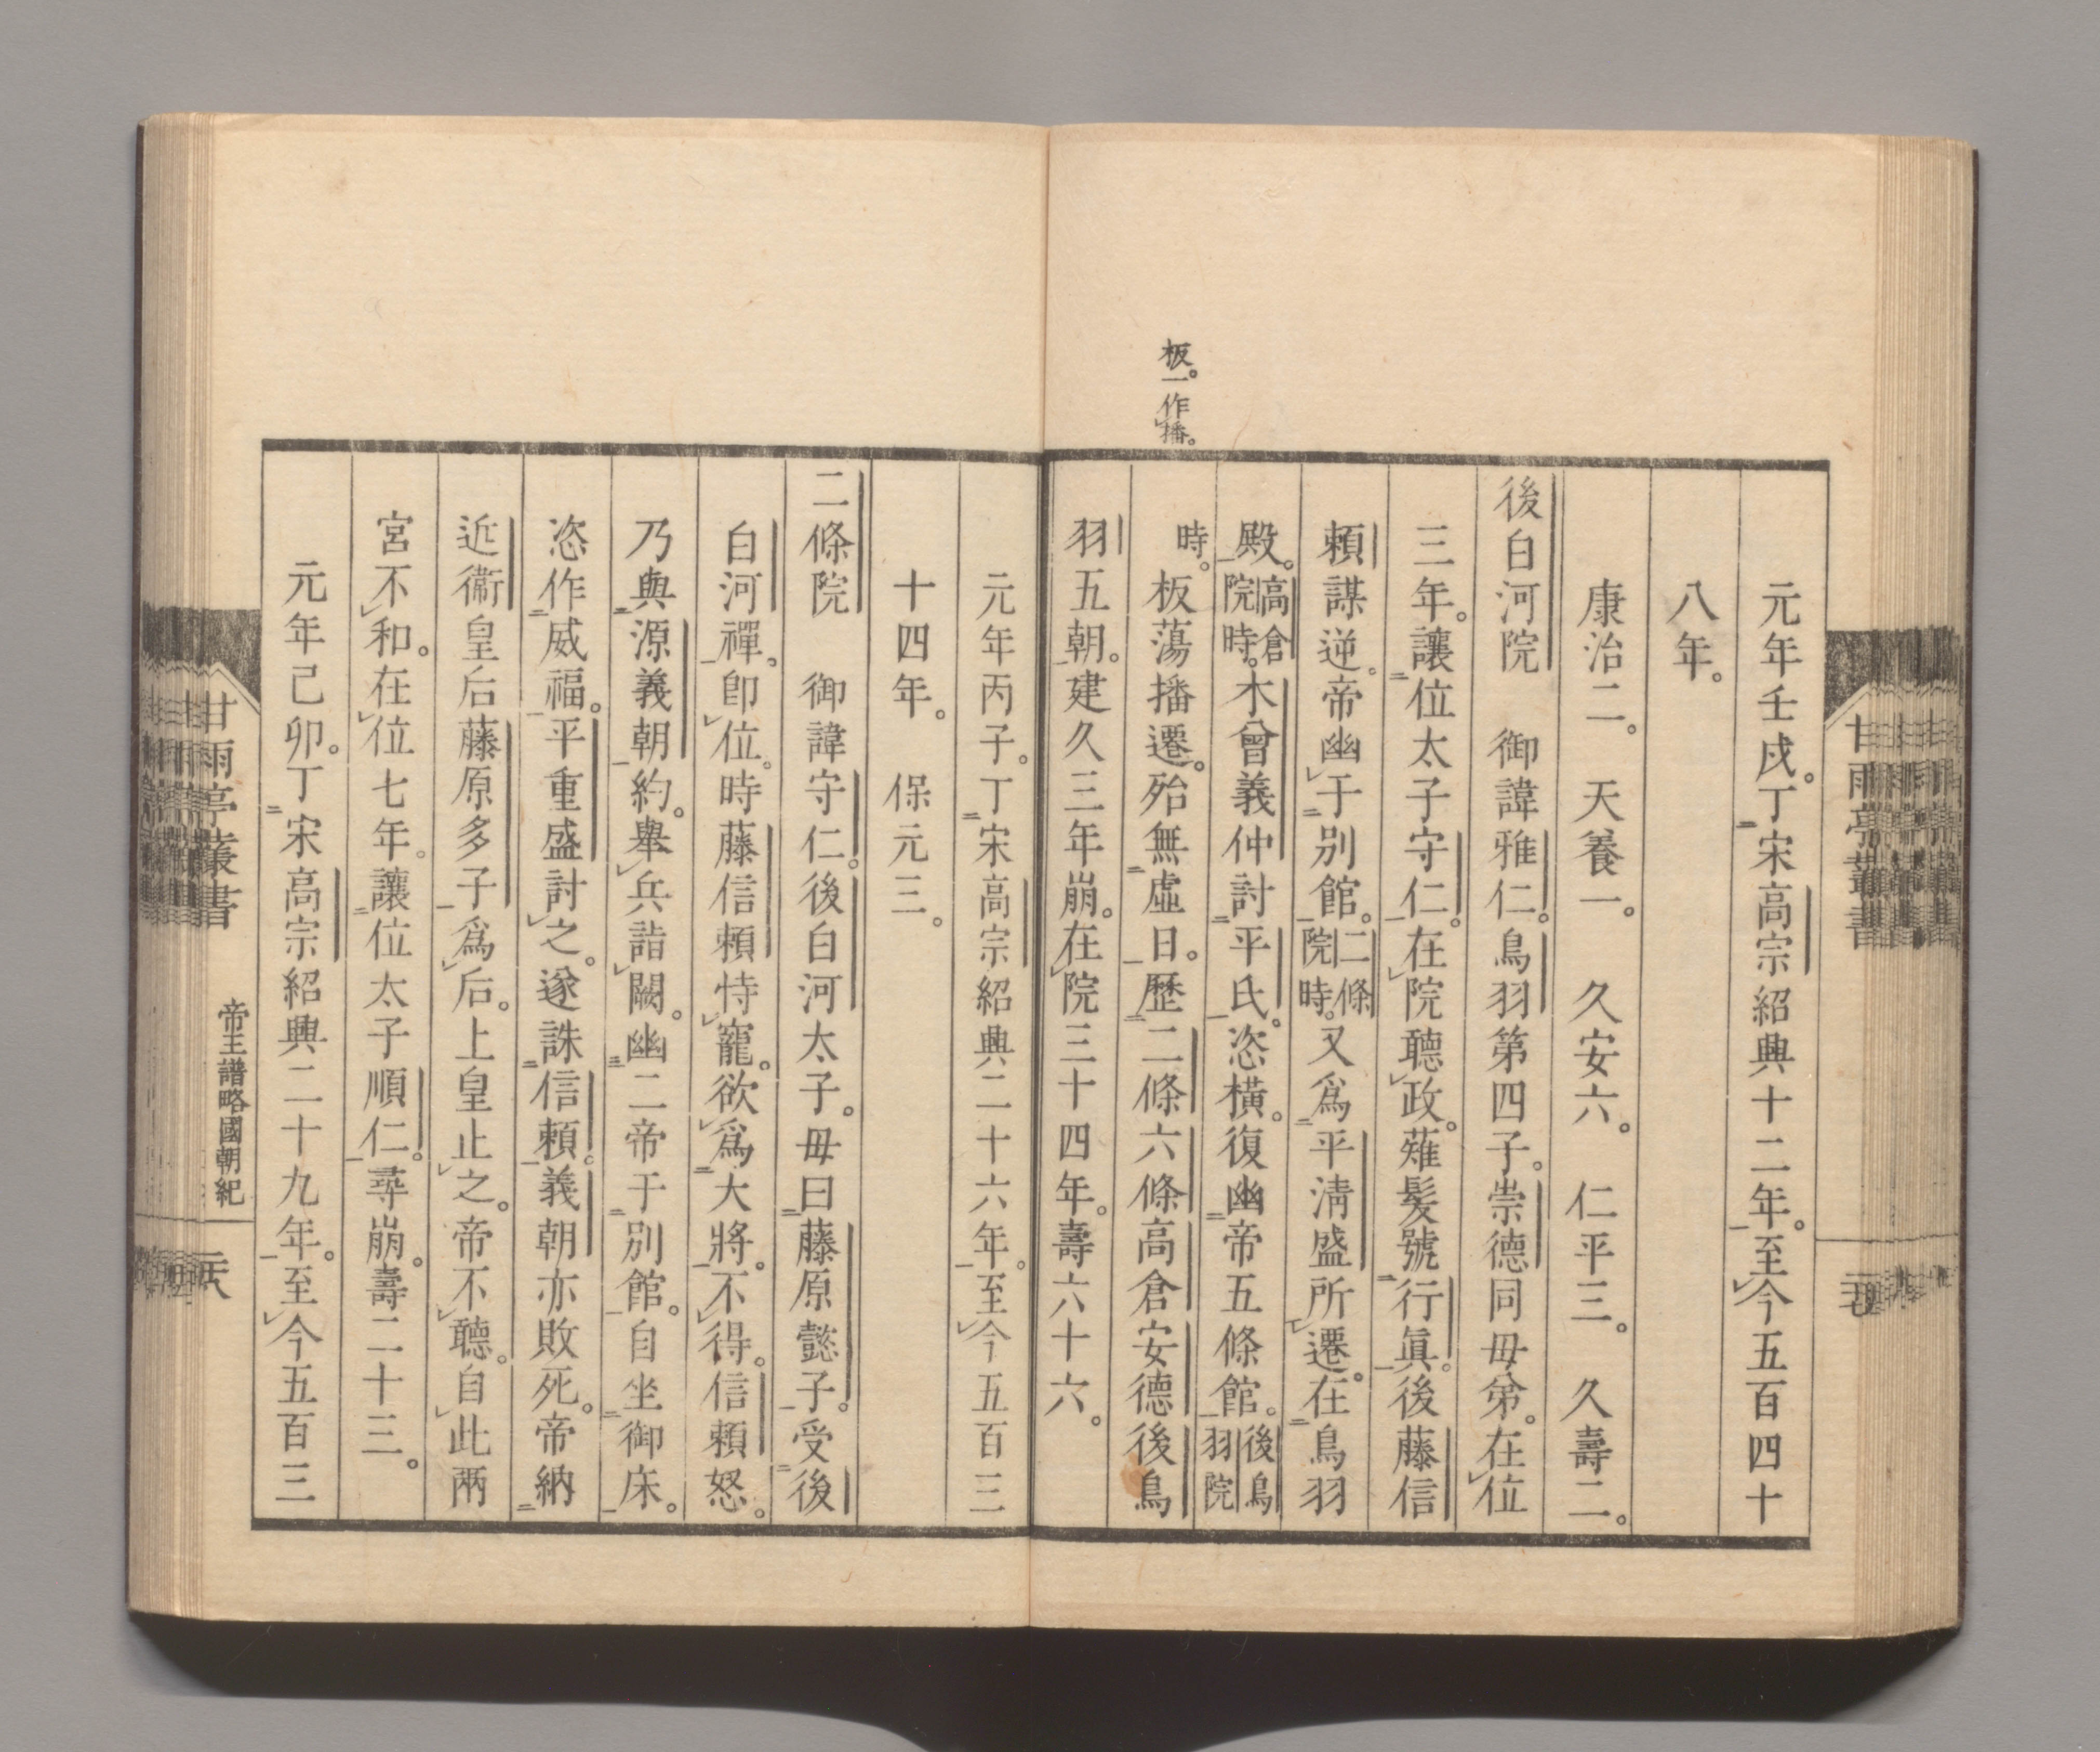 元年壬戌。丁宋高宗紹興十二年。至今五百四十
八年。
康治二。天養一。久安六。仁平三。久壽二。
後白河院　御諱雅仁。鳥羽第四子。崇德同母弟。在位
三年。讓位太子守仁。在院聽政。薙髮號行眞。後藤信
賴謀逆。帝幽于別館。二條院時。又爲平淸盛所遷。在鳥羽
殿。高倉院時。木曾義仲討平氏。恣橫。復幽帝五條館。後鳥羽院
時。板蕩播遷。殆無虛日。歷二條六條高倉安德後鳥
板。一作播。
羽五朝。建久三年崩。在院三十四年。壽六十六。
元年丙子。丁宋高宗紹興二十六年。至今五百三
十四年。　保元三。
二條院　御諱守仁。後白河太子。母曰藤原懿子。受後
白河禪。卽位。時藤信賴恃寵。欲爲大將。不得。信賴怒。
乃與源義朝約。擧兵詣闕。幽二帝于別館。自坐御床。
恣作威福。平重盛討之。遂誅信賴。義朝亦敗死。帝納
近衞皇后藤原多子爲后。上皇止之。帝不聽。自此兩
宮不和。在位七年。讓位太子順仁。尋崩。壽二十三。
元年己卯。丁宋高宗紹興二十九年。至今五百三
甘雨亭叢書
帝王譜略國朝紀
甘雨亭叢書